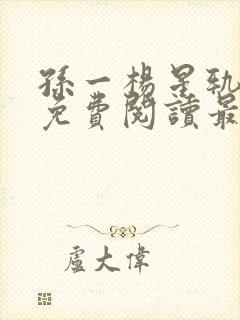 孫一楊是執
免費閱讀最
盧大偉